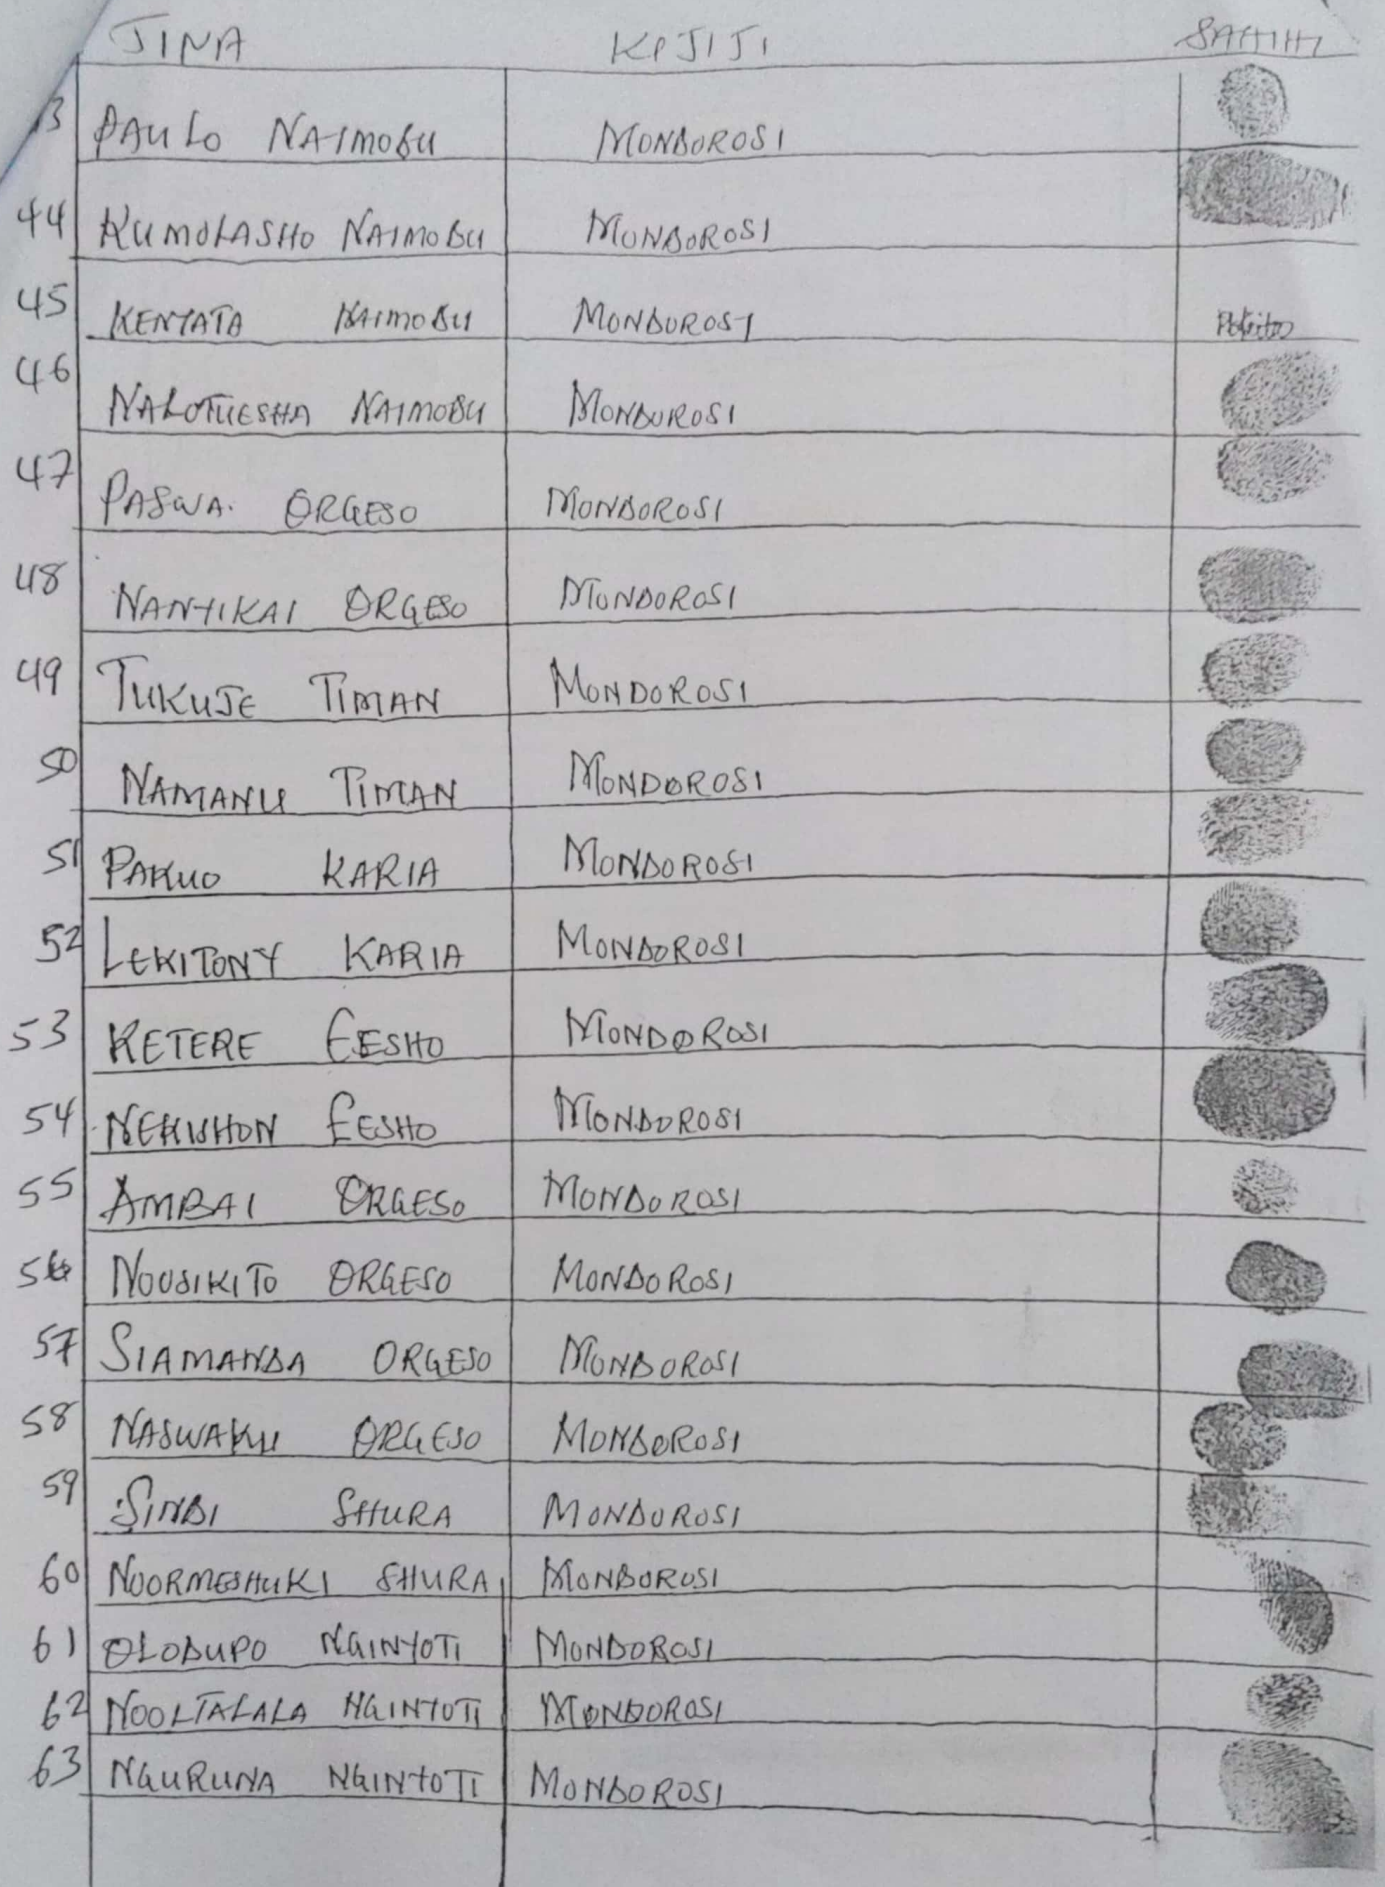 JINA KIJIJI SAHIHI
3 PAULO NAIMODU MONDOROSI
44 KUMOLASHO NAIMODU MONDOROSI
45 KENYATA NAIMODU MONDOROSI
46 NALOTUESHA NAIMODU MONDOROSI
47 PASWA. ORGESO MONDOROSI
48 NANYIKAI ORGESO MONDOROSI
49 TUKUJE TIMAN MONDOROSI
50 NAMANU TIMAN MONDOROSI
51 PAKUO KARIA MONDOROSI
52 LEKITONY KARIA MONDOROSI
53 KETERE EESHO MONDOROSI
54 NEKISHON EESHO MONDOROSI
55 AMBAI ORGESO MONDOROSI
56 NOOSIKITO ORGESO MONDOROSI
57 SIAMANDA ORGESO MONDOROSI
58 NASWAKU ORGESO MONDOROSI
59 SINDI SHURA MONDOROSI
60 NOORMESHUKI SHURA MONDOROSI
61 OLODUPO NGINYOTI MONDOROSI
62 NOOLTALALA NGINYOTI MONDOROSI
63 NGURUNA NGINYOTI MONDOROSI